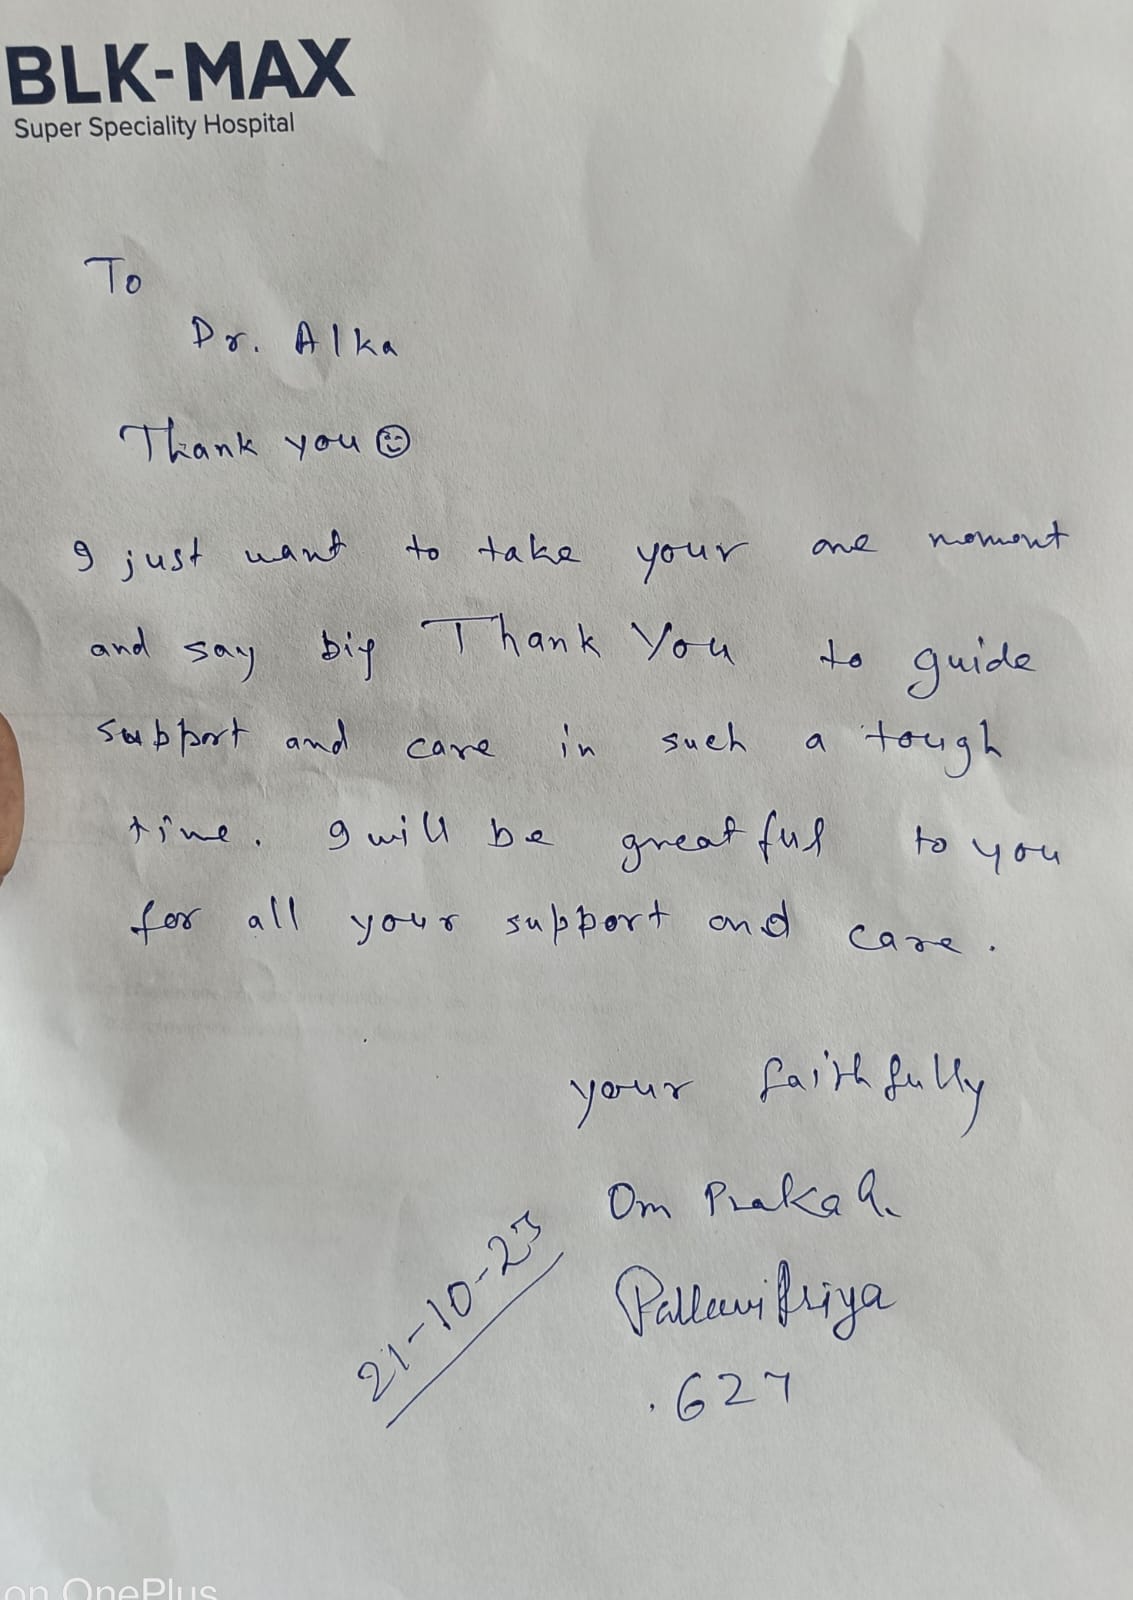 BLK-MAX
Super Speciality Hospital
To
Dr. Alka
Thank you
I just want to take your one moment
and say big Thank You to guide
support and care in such a tough
time. I will be greatful to you
for all your support and care.
your faithfully
Om Prakash.
Pallavi Priya
21-10-23
.627
on OnePlus